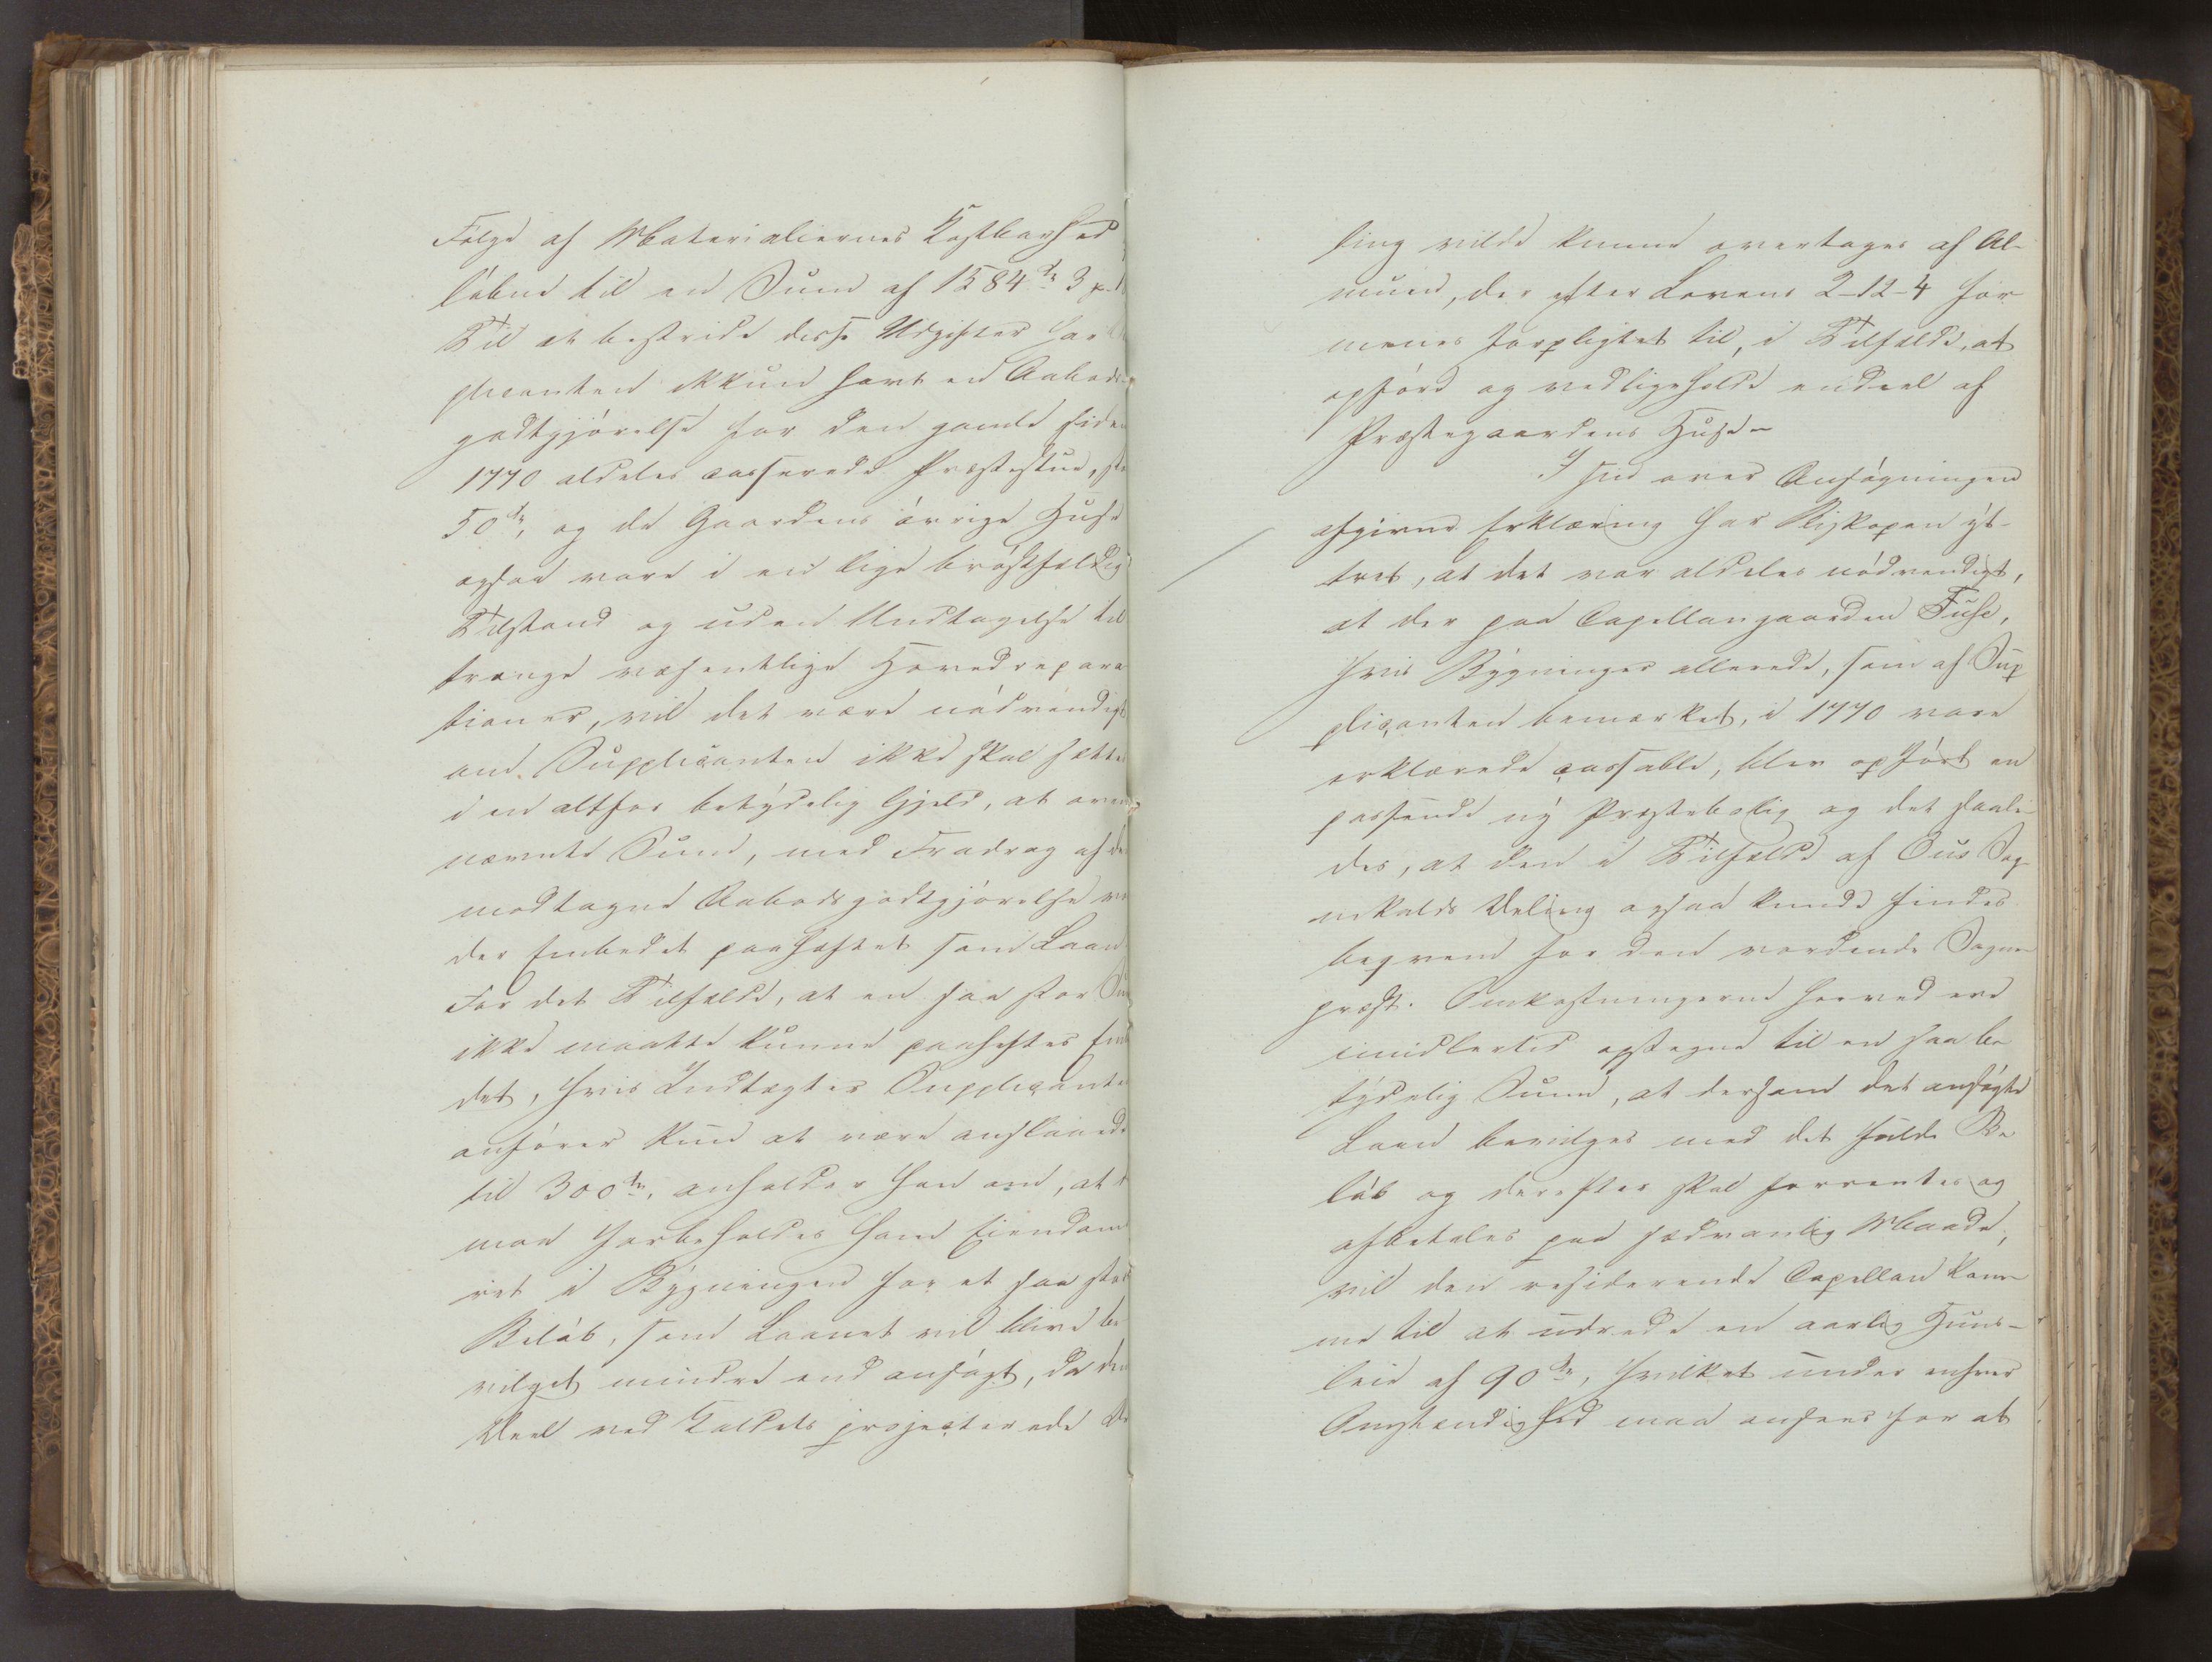 Følge af Materialiernes Kostbarhed
løbne til en Sum af 1584 d 3 p
Til at bestride disse Udgifter har
plicanten ikkun havt en Aabods-
godtgjørelse for den gamle siden
1770 aldeles casserede Præstestue,
50 d, og da Gaardens øvrige Huse
ogsaa vare i en lige brøstfældig
Tilstand og uden Undtagelse til
trænge væsentlige Hovedrepara
tioner, vil det være nødvendigt
om Supplicanten ikke skal sættes
i en altfor betydelig Gjeld, at oven
nævnte Sum, med Fradrag af den
modtagne Aabodsgodtgjørelse
der Embedet paaheftet som Laan
For det Tilfælde, at en saa stor Sum
ikke maatte kunne paaheftes Embe
det, hvis Indtægter Supplicanten
anfører kun at være anslaaede
til 300 d, anholder han om, at
maa forbeholdes ham Eiendoms
ret i Bygningen for et saa stort
Beløb, som Laanet vil blive be
vilget mindre end ansøgt, da den
Deel ved Kaldets projecterede De
ling vilde kunne overtages af Al-
muen, der efter Lovens 2-12-4 for
menes forpligtet til, i Tilfælde, at
opføre og vedligeholde endeel af
Præstegaardens Huse-
I sin over Ansøgningen
afgivne Erklæring har Biskopen yt-
tret, at det var aldeles nødvendigt,
at der paa Capellangaarden Fuse,
hvis Bygninger allerede, som af Sup
plicanten bemærket, i 1770 vare
erklærede cassable, blev opført en
passende ny Præstebolig og det saale
des, at den i Tilfælde af Ous Sog
nekalds Deling ogsaa kunde findes
beqvem for den vordende Sogne
præst. Omkostningerne herved ere
imidlertid opstegne til en saa be
tydelig Sum, at dersom det ansøgte
Laan bevilges med det fulde Be
løb og derefter skal forrentes og
afbetales paa sædvanlig Maade,
vil den residerende Capellan kom
me til at udrede en aarlig Huus-
leie af 90 d, hvilket under enhver
Omstændighed maa ansees for at